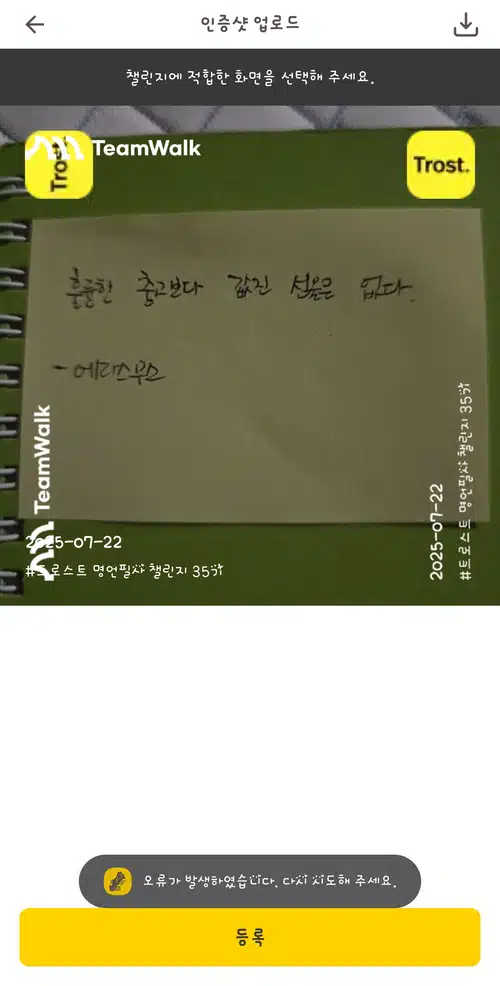 인증샷 업로드
챌린지에 적합한 화면을 선택해 주세요.
TeamWalk
Trost.
Trost.
훌륭한 충고보다 값진 선물은 없다.
- 에라스무스
TeamWalk
2025-07-22
#트로스트 명언필사 챌린지 35차
2025-07-22
#트로스트 명언필사 챌린지 35차
오류가 발생하였습니다. 다시 시도해 주세요.
등록